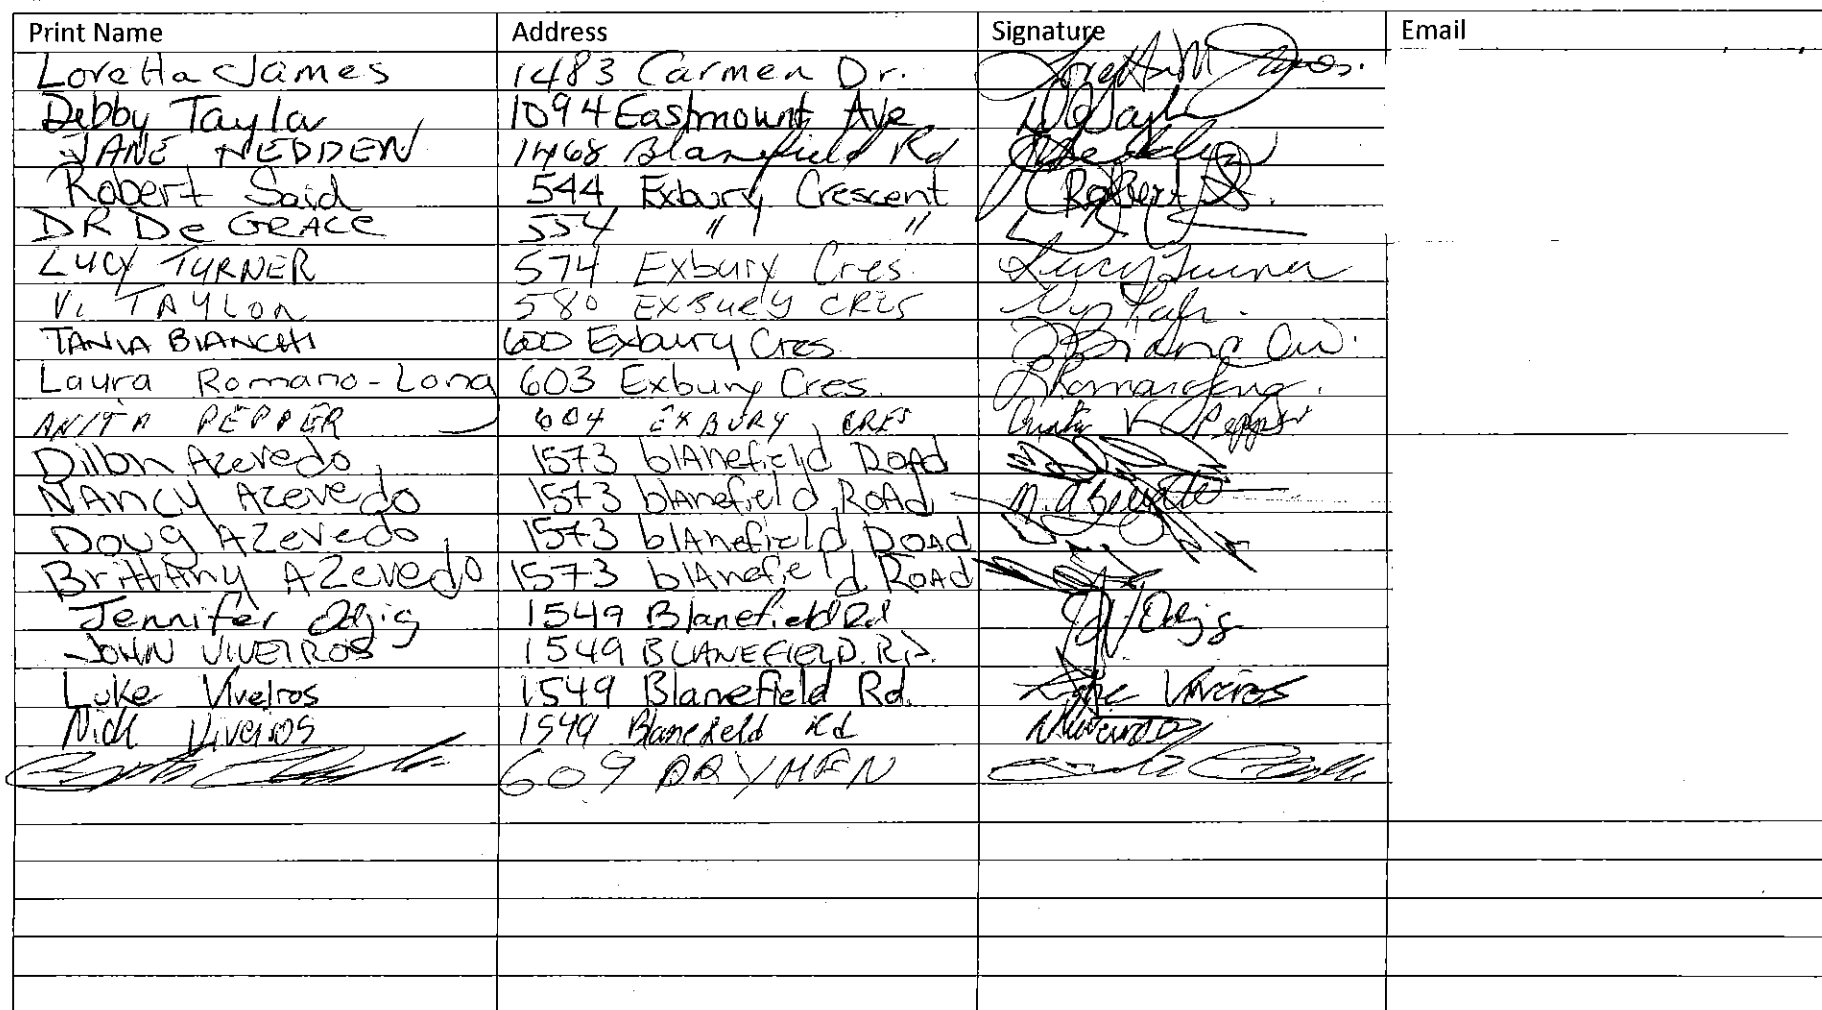 Print Name Address Signature Email
Loretta James 1483 Carmen Dr. Loretta M James.
Debby Taylor 1094 Eastmount Ave
JANE NEDDEN 1468 Blanefield Rd
Robert Said 544 Exbury Crescent Robert S.
DR De GRACE 554 " "
LUCY TURNER 574 Exbury Cres. Lucy Turner
V. TAYLOR 580 EXBURY CRES
TANIA BIANCHI 600 Exbury Cres.
Laura Romano-Long 603 Exbury Cres.
ANITA PEPPER 604 EXBURY CRES Anita V Pepper
Dilon Azevedo 1573 blAnefield Road
NANCY Azevedo 1573 blAnefield RoAd
Doug AZevedo 1573 blAnefield RoAd
BrittAny AZevedo 1573 blAnefield RoAd
Jennifer Odjig 1549 Blanefield Rd
JOHN VIVEIROS 1549 BLANEFIELD. RD.
Luke Viveiros 1549 Blanefield Rd. Luke Viveiros
Nick Viveiros 1549 Blanefield Rd
609 DRYMEN